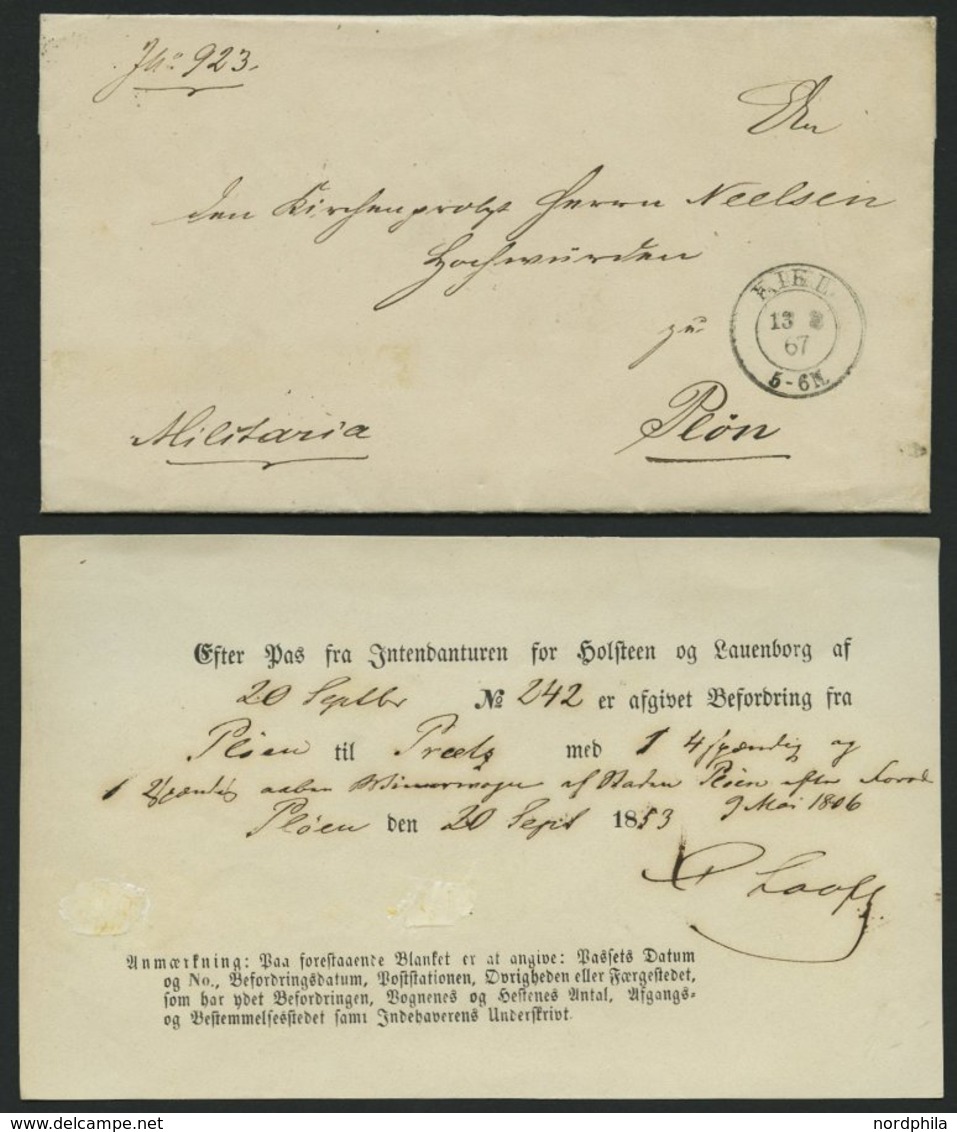 J№ 923.
An
den Kirchenprobst Herrn Neelsen
Hochwürden
zu
KIEL
13 2
67
5-6N.
Militaria
Plön
Efter Pas fra Intendanturen for Holsteen og Lauenborg af
20 Septbr № 242 er afgivet Befordring fra
Pløen til Preetz med 1 4spændig og
1 2spændig aaben af Staden Pløen efter
9 Mai 1806
Pløen den 20 Sept 1853
Anmærkning: Paa forestaaende Blanket er at angive: Passets Datum
og No., Befordringsdatum, Poststationen, Øvrigheden eller Færgestedet,
som har ydet Befordringen, Vognenes og Hestenes Antal, Afgangs-
og Bestemmelsesstedet samt Indehaverens Underskrivt.
www.delcampe.net
nordphila